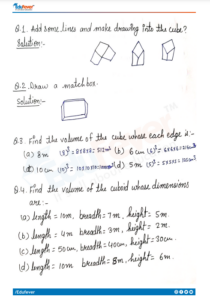 Q.1. Add some lines and make drawing into the cube?
Solution:-
Q.2. Draw a matchbox.
Solution:-
Q.3. Find the volume of the cube whose each edge is:-
(a) 8m (8)³ = 8x8x8 = 512m³ (b) 6cm (6)³ = 6x6x6 = 216cm³
(c) 10cm (10)³ = 10x10x10 = (d) 5m (5)³ = 5x5x5 =
Q.4. Find the volume of the cuboid whose dimensions
are :-
(a) length = 10m, breadth = 7m, height = 5m.
(b) length = 4m breadth = 3m, height = 2m.
(c) length = 50cm, breadth = 40cm, height = 30cm.
(d) length = 10m breadth = 8m, height = 6m.
Edufever